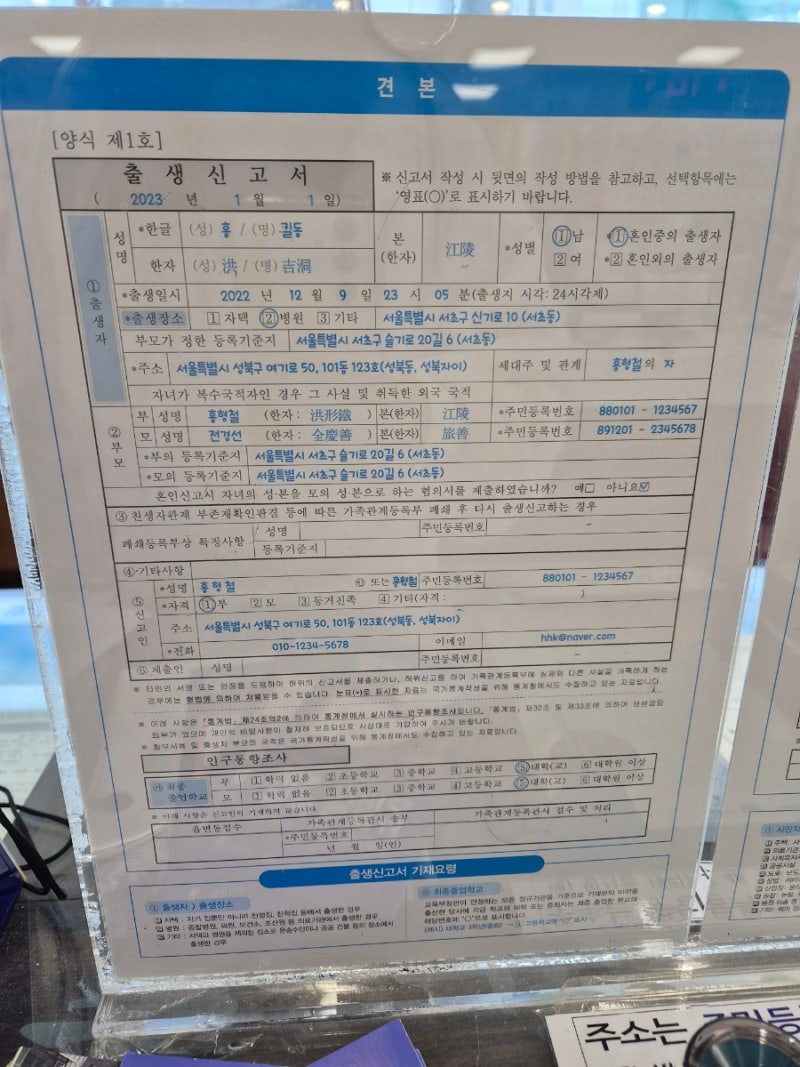 견 본
[양식 제1호]
출 생 신 고 서
( 2023 년 1 월 1 일)
※ 신고서 작성 시 뒷면의 작성 방법을 참고하고, 선택항목에는
'영표(○)'로 표시하기 바랍니다.
① 출생자
성명
*한글 (성) 홍 / (명) 길동
한자 (성) 洪 / (명) 吉洞
본 (한자) 江陵
*성별 ①남 ②여
*①혼인중의 출생자
*②혼인외의 출생자
*출생일시 2022 년 12 월 9 일 23 시 05 분(출생지 시각: 24시각제)
*출생장소 ①자택 ②병원 ③기타 서울특별시 서초구 신기로 10 (서초동)
부모가 정한 등록기준지 서울특별시 서초구 슬기로 20길 6 (서초동)
*주소 서울특별시 성북구 여기로 50, 101동 123호(성북동, 성북자이) 세대주 및 관계 홍형철의 자
자녀가 복수국적자인 경우 그 사실 및 취득한 외국 국적
② 부모
부 성명 홍형철 (한자: 洪形鐵 ) 본(한자) 江陵 *주민등록번호 880101 - 1234567
모 성명 전경선 (한자: 全慶善 ) 본(한자) 旌善 *주민등록번호 891201 - 2345678
*부의 등록기준지 서울특별시 서초구 슬기로 20길 6 (서초동)
*모의 등록기준지 서울특별시 서초구 슬기로 20길 6 (서초동)
혼인신고시 자녀의 성·본을 모의 성·본으로 하는 협의서를 제출하였습니까? 예□ 아니요☑
③ 친생자관계 부존재확인판결 등에 따른 가족관계등록부 폐쇄 후 다시 출생신고하는 경우
폐쇄등록부상 특정사항 성명 주민등록번호 -
등록기준지
④ 기타사항
⑤ 신고인
*성명 홍형철 ㊞ 또는 홍형철 주민등록번호 880101 - 1234567
*자격 ①부 ②모 ③동거친족 ④기타(자격: )
주소 서울특별시 성북구 여기로 50, 101동 123호(성북동, 성북자이)
*전화 010-1234-5678 이메일 hhk@naver.com
⑥ 제출인 성명 주민등록번호 -
※ 타인의 서명 또는 인장을 도용하여 허위의 신고서를 제출하거나, 허위신고를 하여 가족관계등록부에 실제와 다른 사실을 기록하게 하는
경우에는 형법에 의하여 처벌받을 수 있습니다. 눈표(*)로 표시한 자료는 국가통계작성을 위해 통계청에서도 수집하고 있는 자료입니다.
※ 아래 사항은 「통계법」 제24조의2에 의하여 통계청에서 실시하는 인구동향조사입니다. 「통계법」 제32조 및 제33조에 의하여 성실응답
의무가 있으며 개인의 비밀사항이 철저히 보호되므로 사실대로 기입하여 주시기 바랍니다.
※ 첨부서류 및 출생자 부모의 국적은 국가통계작성을 위해 통계청에서도 수집하고 있는 자료입니다.
인구동향조사
㉮ 최종 졸업학교
부 ①학력 없음 ②초등학교 ③중학교 ④고등학교 ⑤대학(교) ⑥대학원 이상
모 ①학력 없음 ②초등학교 ③중학교 ④고등학교 ⑤대학(교) ⑥대학원 이상
※ 아래 사항은 신고인이 기재하지 않습니다.
읍면동접수 가족관계등록관서 송부 가족관계등록관서 접수 및 처리
*주민등록번호
년 월 일(인)
출생신고서 기재요령
① 출생자 > 출생장소
① 자택 : 자기 집뿐만 아니라 친정집, 친척집 등에서 출생한 경우
② 병원 : 종합병원, 의원, 보건소, 조산원 등 의료기관에서 출생한 경우
③ 기타 : 자택과 병원을 제외한 장소로 운송수단이나 공공 건물 등의 장소에서
출생한 경우
㉮ 최종졸업학교
교육부장관이 인정하는 모든 정규기관을 기준으로 기재하되
해당번호에 "○"으로 표시합니다.
① 사망자
주소는